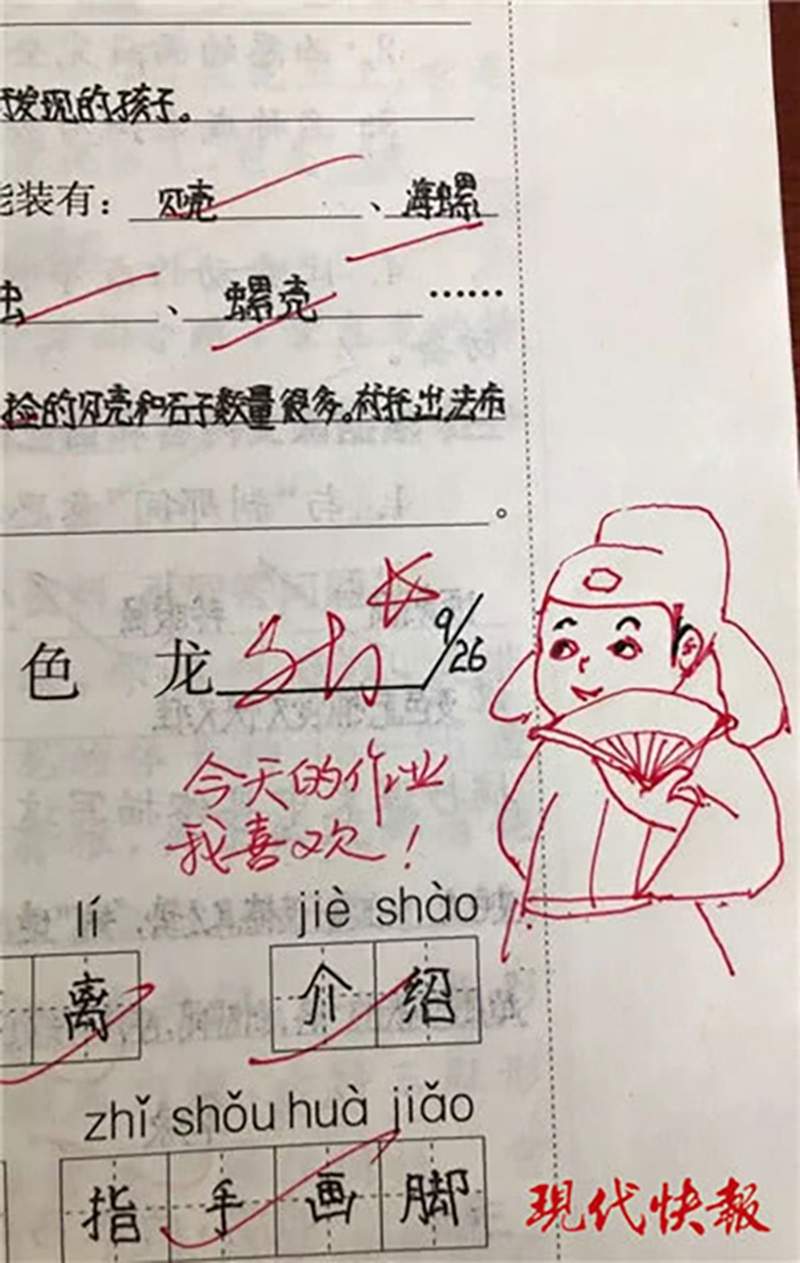 发现的孩子。
能装有：贝壳、海螺
虫、螺壳……
捡的贝壳和石子数量很多。衬托出法布
。
色 龙 9/26
今天的作业
我喜欢！
lí jiè shào
离 介绍
zhǐ shǒu huà jiǎo
指手画脚
現代快報